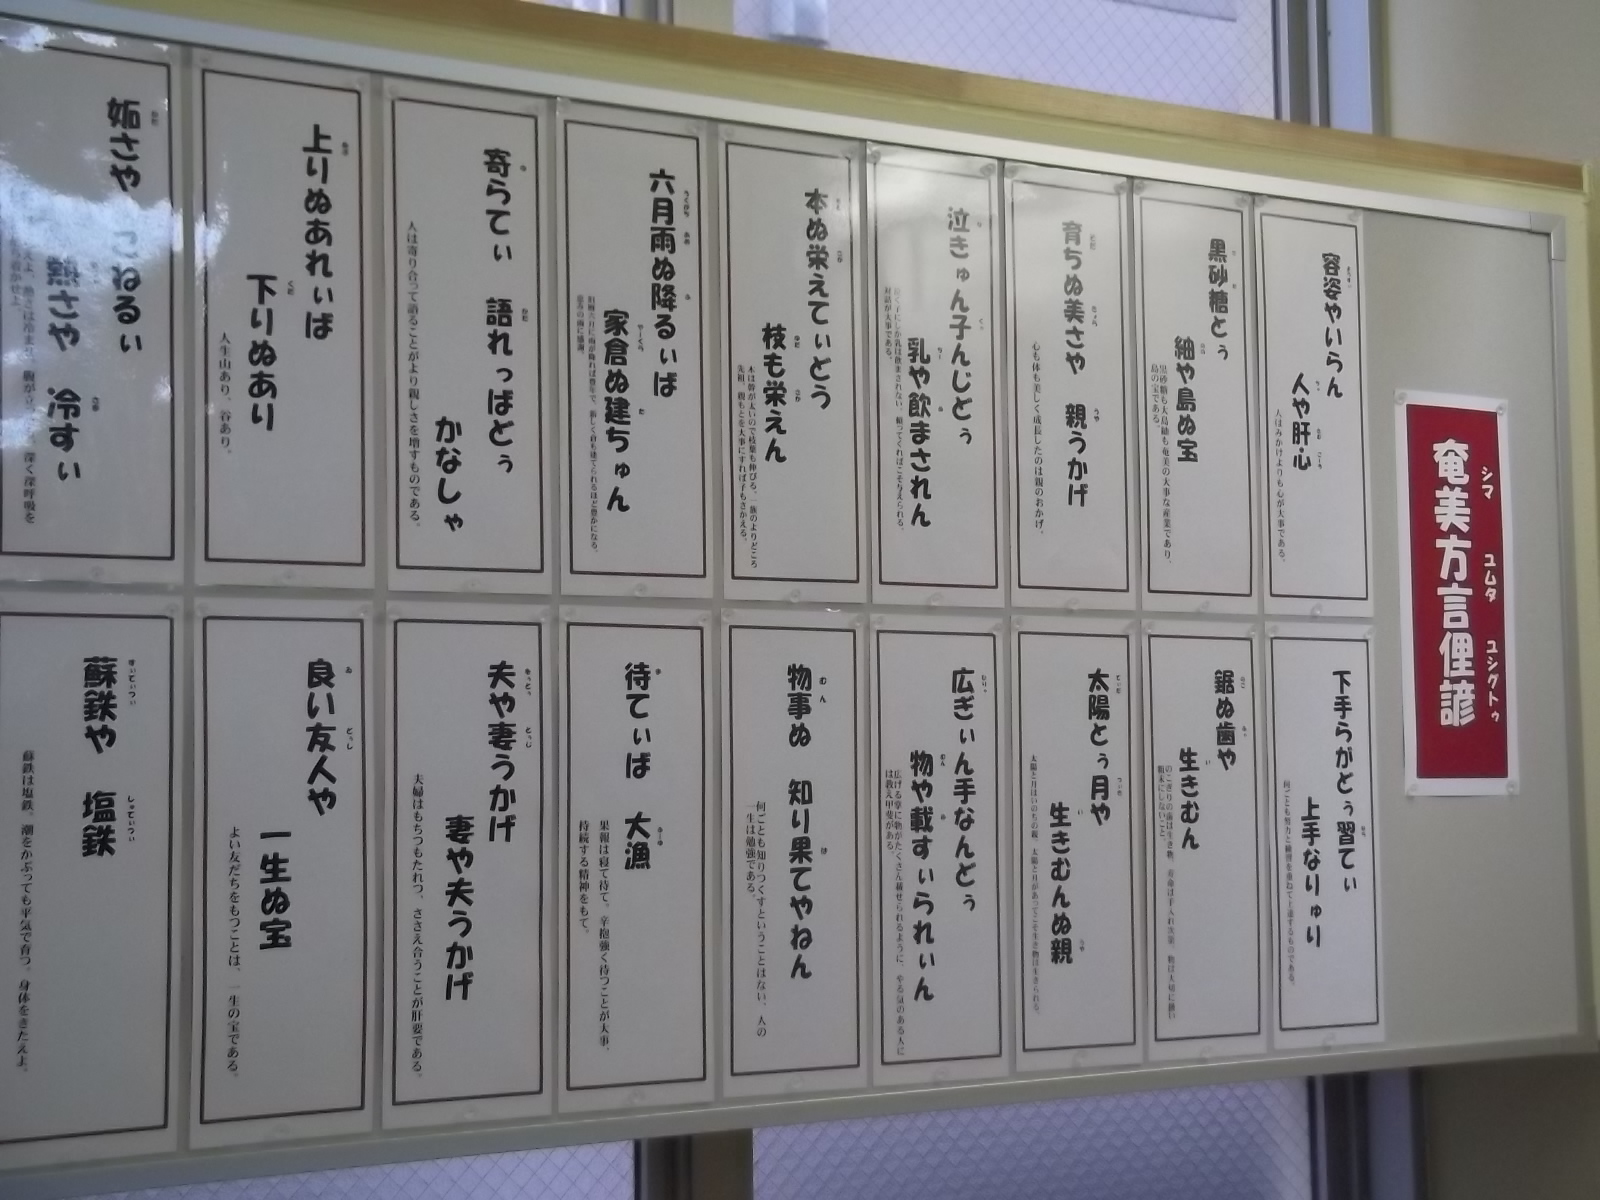 奄美方言俚諺
シマ ユムタ ユシグトゥ
容姿やいらん
人や肝心
人はみかけよりも心が大事である。
黒砂糖とぅ
紬や島ぬ宝
黒砂糖も大島紬も奄美の大事な産業であり、
島の宝である。
育ちぬ美さや 親うかげ
心も体も美しく成長したのは親のおかげ。
泣きゅん子んじどぅ
乳や飲まされん
泣く子にしか乳は飲まされない。頼ってくればこそ与えられる。
対話が大事である。
本ぬ栄えてぃどう
枝も栄えん
木は幹が太いので枝葉も伸びる。一族のよりどころ
先祖、親もとを大事にすれば子もさかえる。
六月雨ぬ降るぃば
家倉ぬ建ちゅん
旧暦六月に雨が降れば豊年で、新しく倉も建てられるほど豊かになる。
恵みの雨に感謝。
寄らてぃ 語れっばどぅ
かなしゃ
人は寄り合って語ることがより親しさを増すものである。
上りぬあれぃば
下りぬあり
人生山あり、谷あり。
妬さや こねるぃ
熱さや 冷すぃ
深く深呼吸を
下手らがとぅ習てぃ
上手なりゅり
何ごとも努力と練習を重ねて上達するものである。
鋸ぬ歯や
生きむん
のこぎりの歯は生き物、寿命は手入れ次第。物は大切に扱い
粗末にしないこと。
太陽とぅ月や
生きむんぬ親
太陽と月はいのちの親、太陽と月があってこそ生き物は生きられる。
広ぎぃん手なんどぅ
物や載すぃられぃん
広げる掌に物がたくさん載せられるように、やる気のある人に
は教え甲斐がある。
物事ぬ 知り果てやねん
何ごとも知りつくすということはない、人の
一生は勉強である。
待てぃば 大漁
果報は寝て待て。辛抱強く待つことが大事、
持続する精神をもて。
夫や妻うかげ
妻や夫うかげ
夫婦はもちつもたれつ、ささえ合うことが肝要である。
良い友人や
一生ぬ宝
よい友だちをもつことは、一生の宝である。
蘇鉄や 塩鉄
蘇鉄は塩鉄。潮をかぶっても平気で育つ。身体をきたえよ。